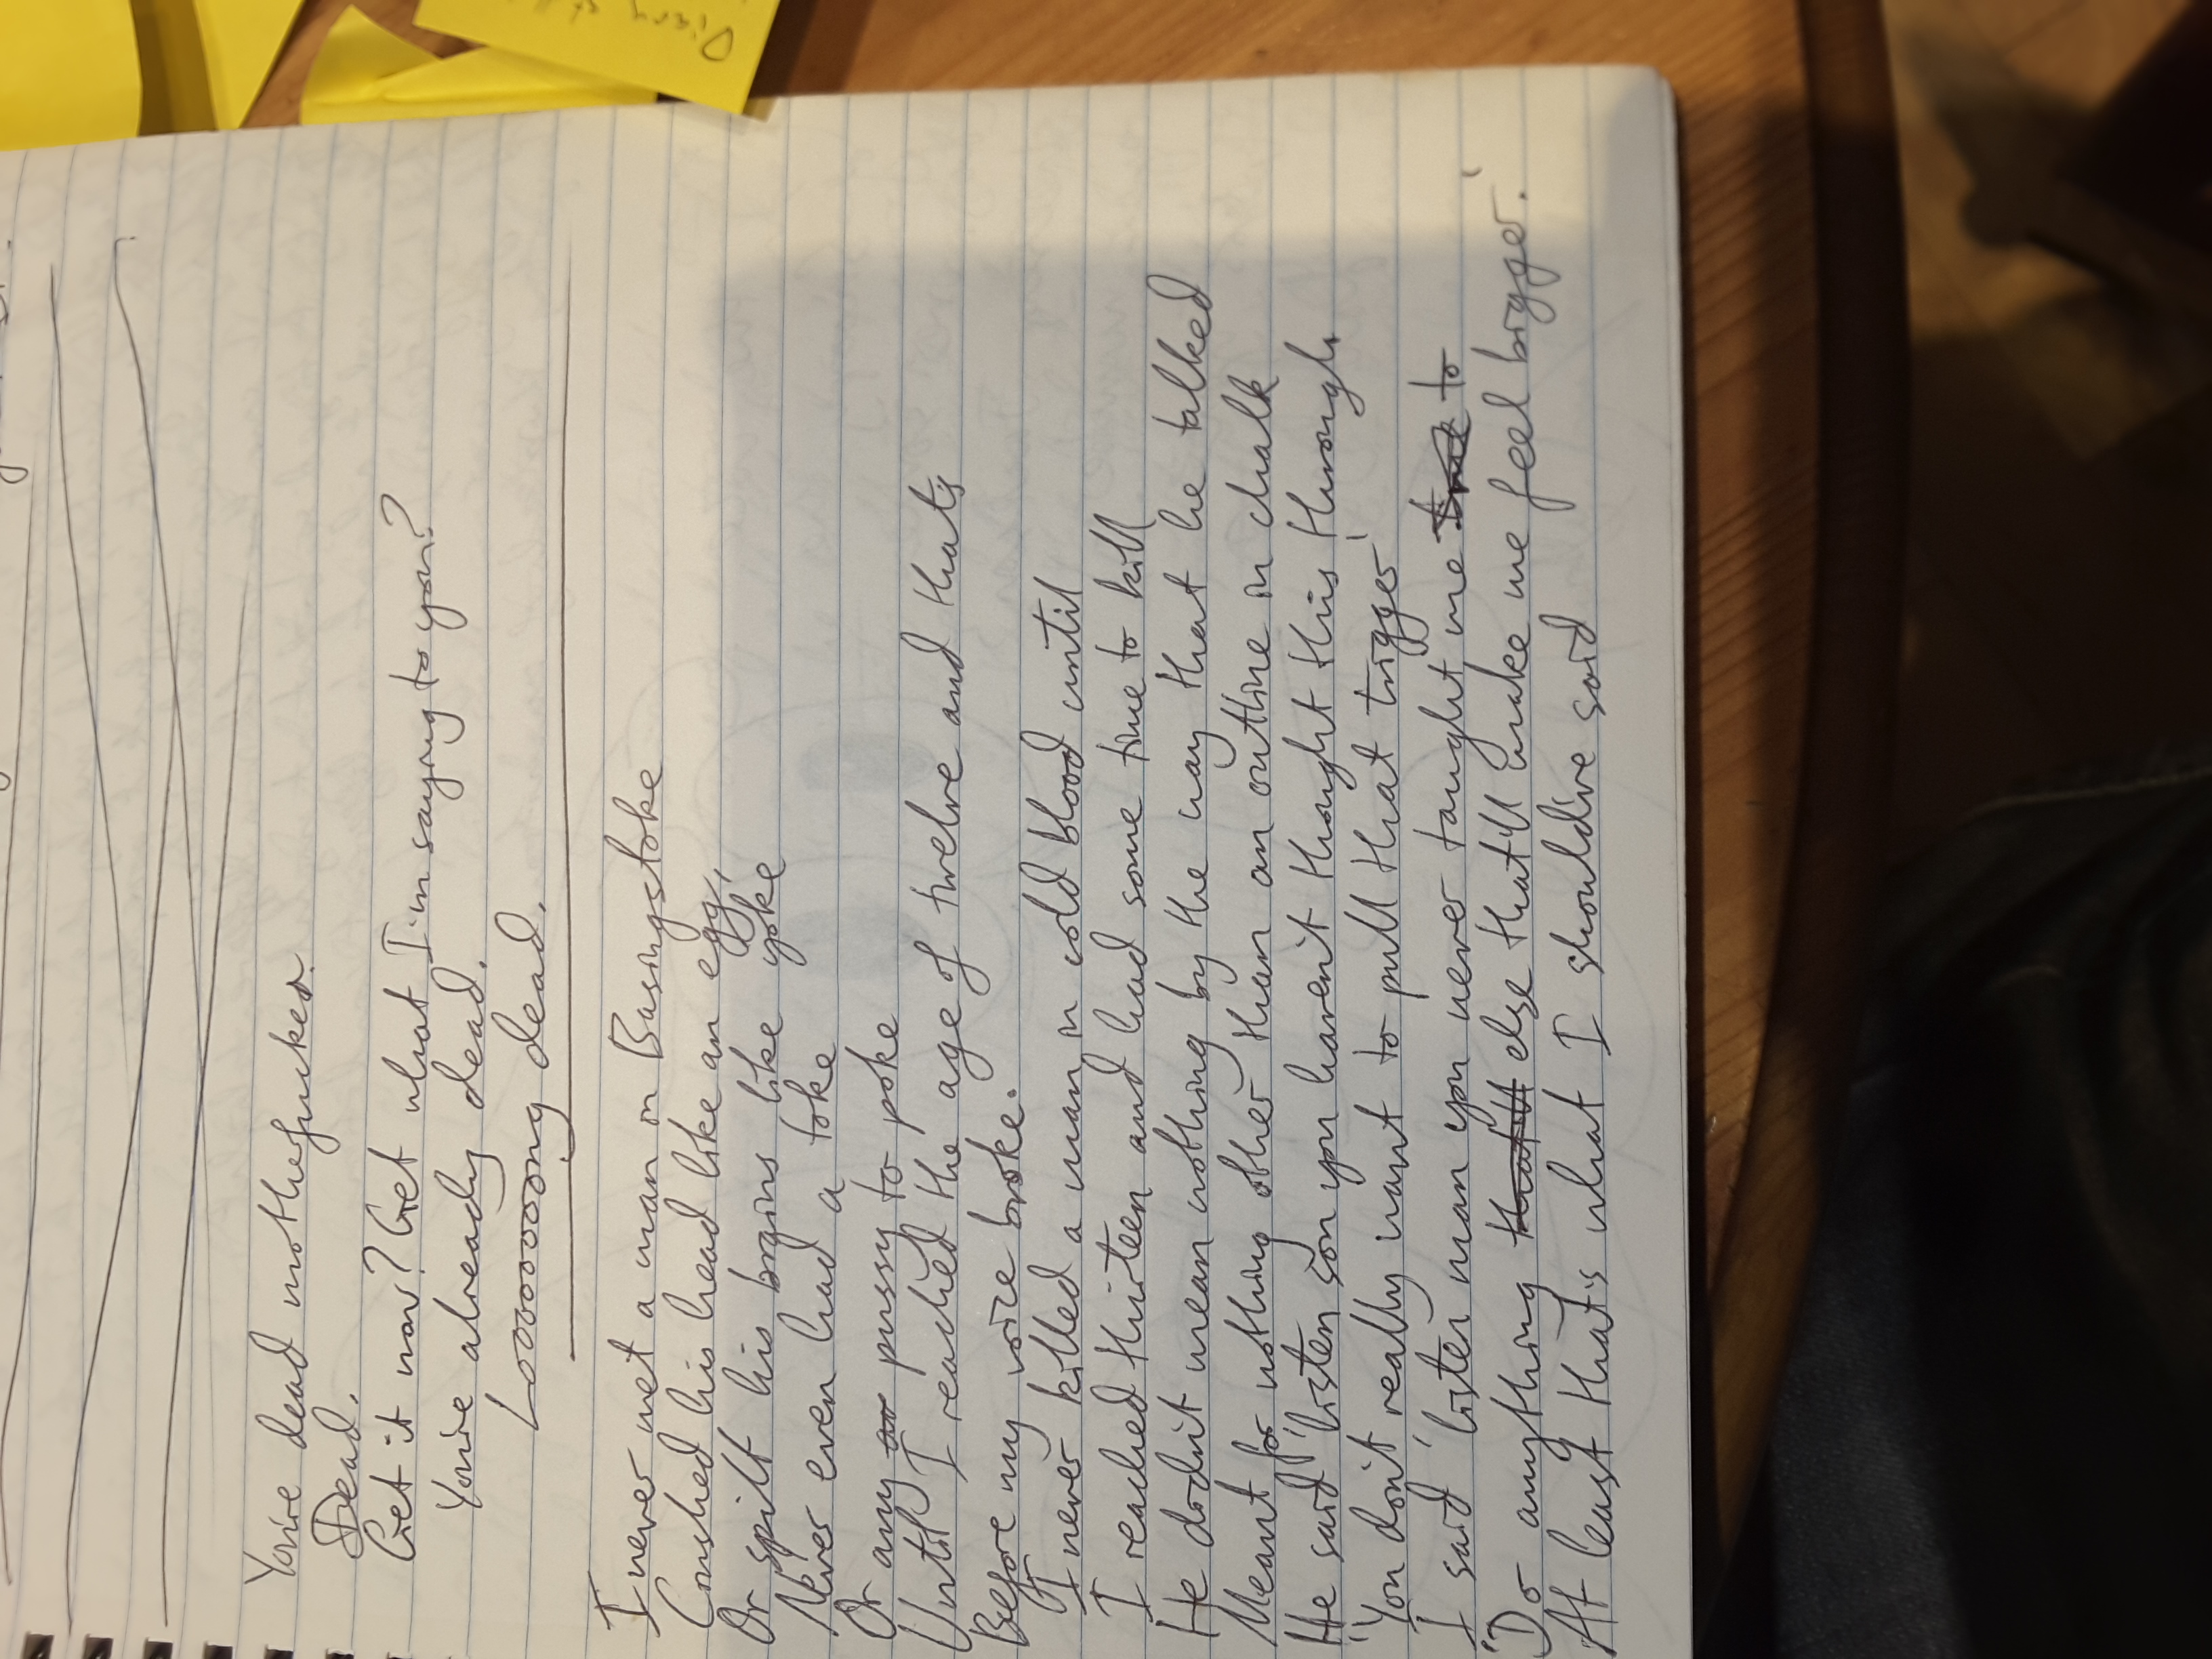 You're dead mothefucker.
Dead.
Get it now? Get what I'm saying to you?
You're already dead.
Looooooooong dead.
I never met a man in Basingstoke
Crushed his head like an egg,
Or spilt his brains like yoke
Never even had a toke
Or any pussy to poke
Until I reached the age of twelve and that's
Before my voice broke.
I never killed a man in cold blood until
I reached thirteen and had some time to kill
He didn't mean nothing by the way that he talked
Meant for nothing other than an outline in chalk
He said 'listen son you haven't thought this through
'You don't really want to pull that trigger'
I said 'listen man you never taught me to
'Do anything that'll else that'll make me feel bigger.'
At least that's what I should've said
Diary